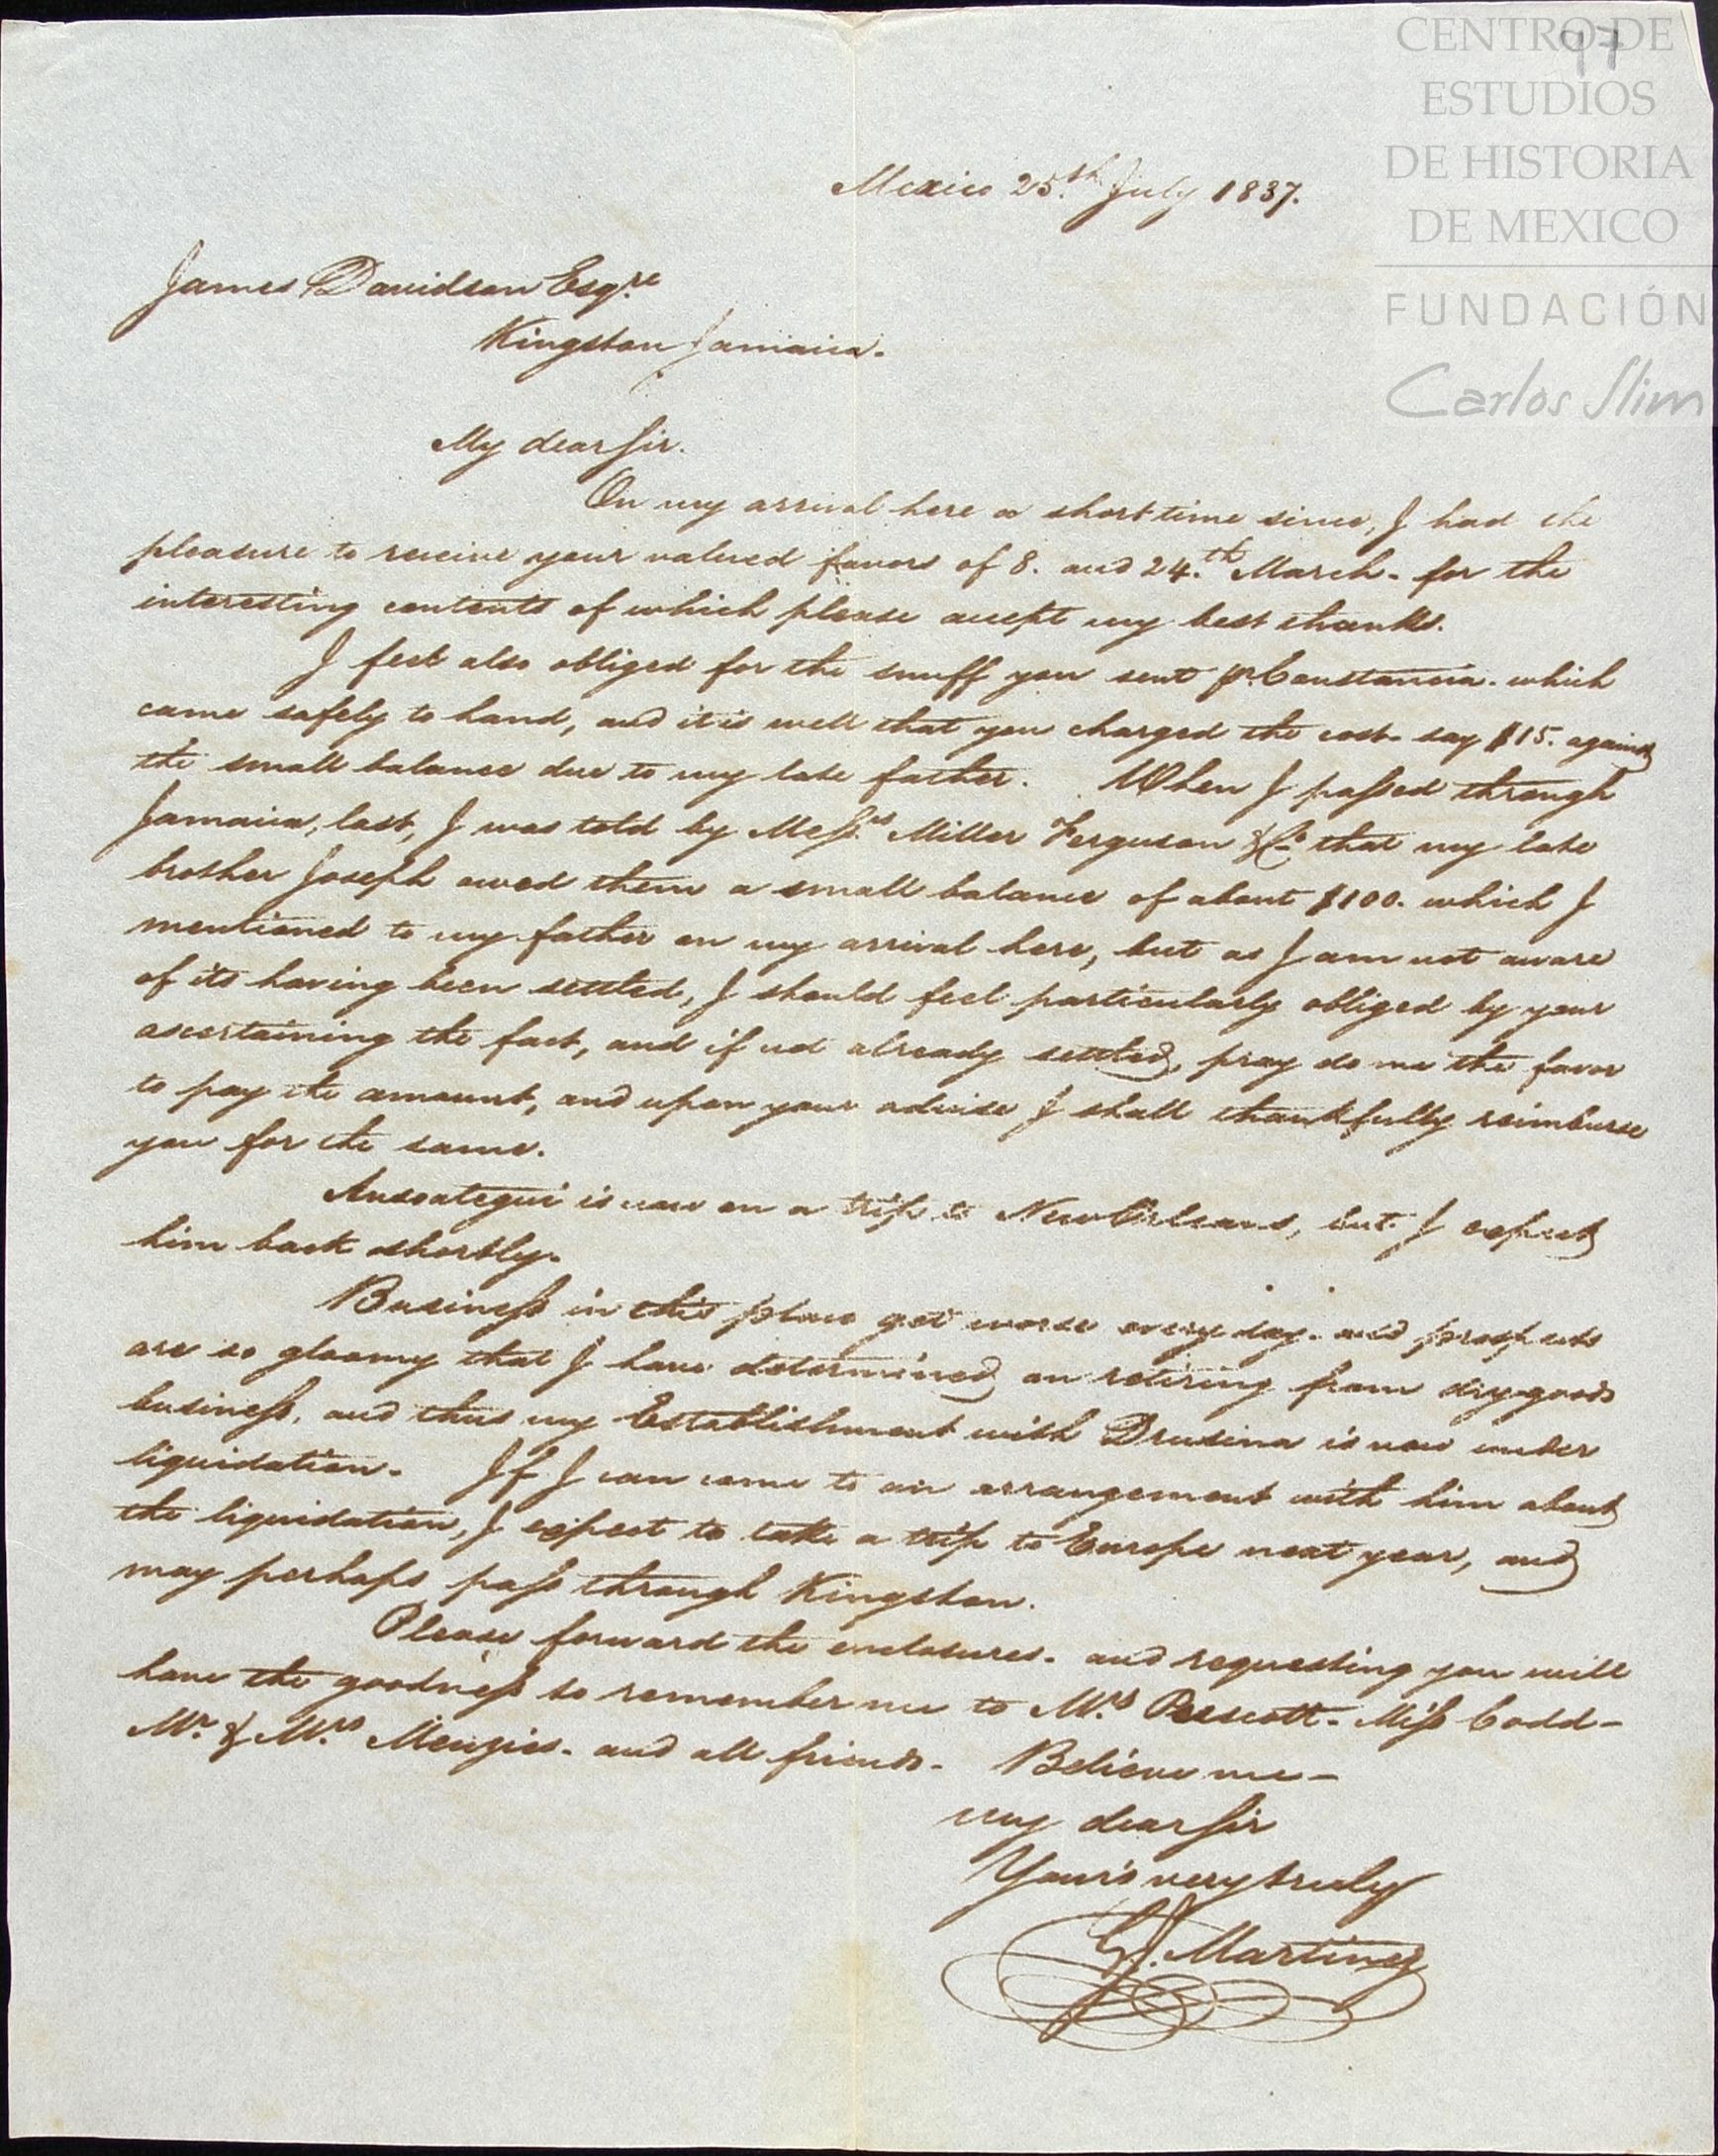 97
CENTRO DE
ESTUDIOS
DE HISTORIA
DE MEXICO
FUNDACIÓN
Carlos Slim
Mexico 25.th July 1837.
James Davidson Esqre
Kingston Jamaica.
My dear Sir.
On my arrival here a short time since, I had the
pleasure to receive your valued favors of 8. and 24.th March. for the
interesting contents of which please accept my best thanks.
I feel also obliged for the snuff you sent pr. Constancia. which
came safely to hand, and it is well that you charged the cost. say $15. against
the small balance due to my late father. When I passed through
Jamaica, last, I was told by Messrs Miller Ferguson & Co that my late
brother Joseph owed them a small balance of about $100. which I
mentioned to my father on my arrival here, but as I am not aware
of its having been settled, I should feel particularly obliged by your
ascertaining the fact, and if not already settled, pray do me the favor
to pay the amount, and upon your advise I shall thankfully reimburse
you for the same.
Ansoategui is now on a trip to New Orleans, but I expect
him back shortly.
Business in this place get worse every day. and prospects
are so gloomy that I have determined on retiring from dry-goods
business, and thus my Establishment with Drusina is now under
liquidation. If I can come to an arrangement with him about
the liquidation, I expect to take a trip to Europe next year, and
may perhaps pass through Kingston.
Please forward the enclosures. and requesting you will
have the goodness to remember me to Mrs Prescott. Miss Codd-
Mr. & Mrs Menzies. and all friends. Believe me-
my dear Sir
Your's very truly
Martinez